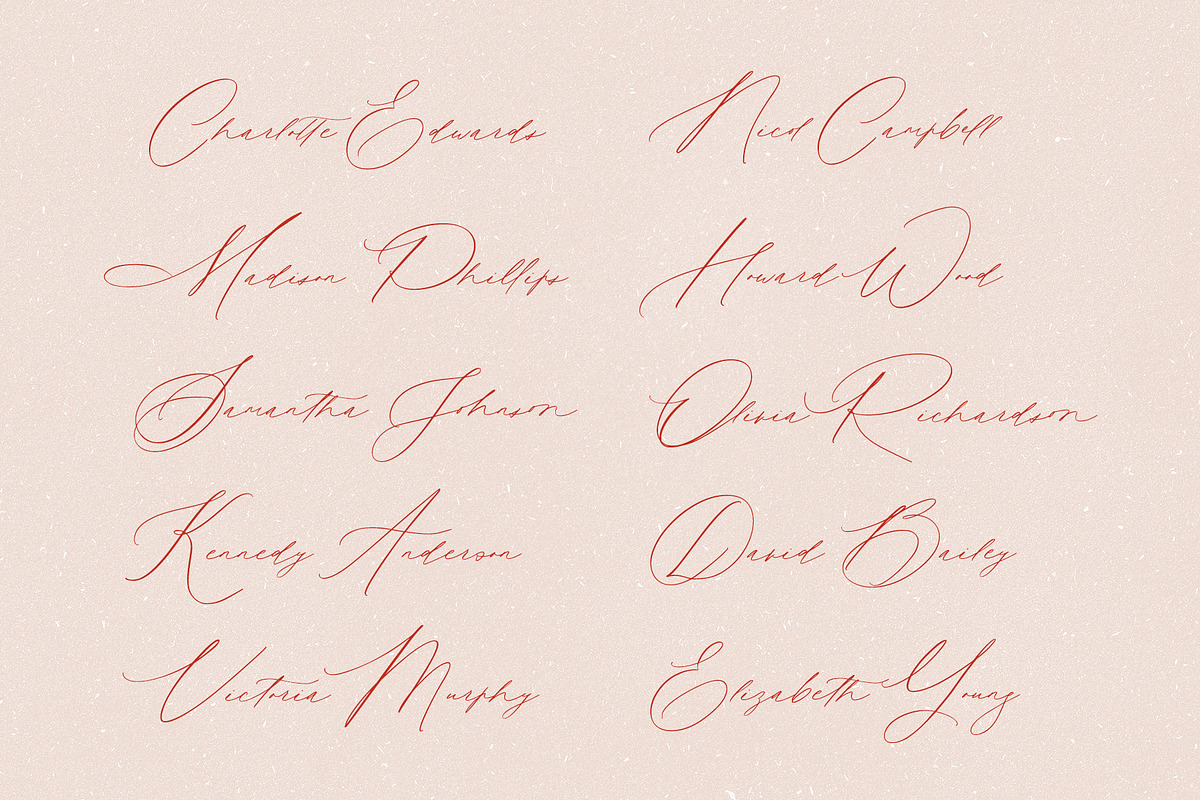 Charlotte Edwards
Nicol Campbell
Madison Phillips
Howard Wood
Samantha Johnson
Olivia Richardson
Kennedy Anderson
David Bailey
Victoria Murphy
Elizabeth Young